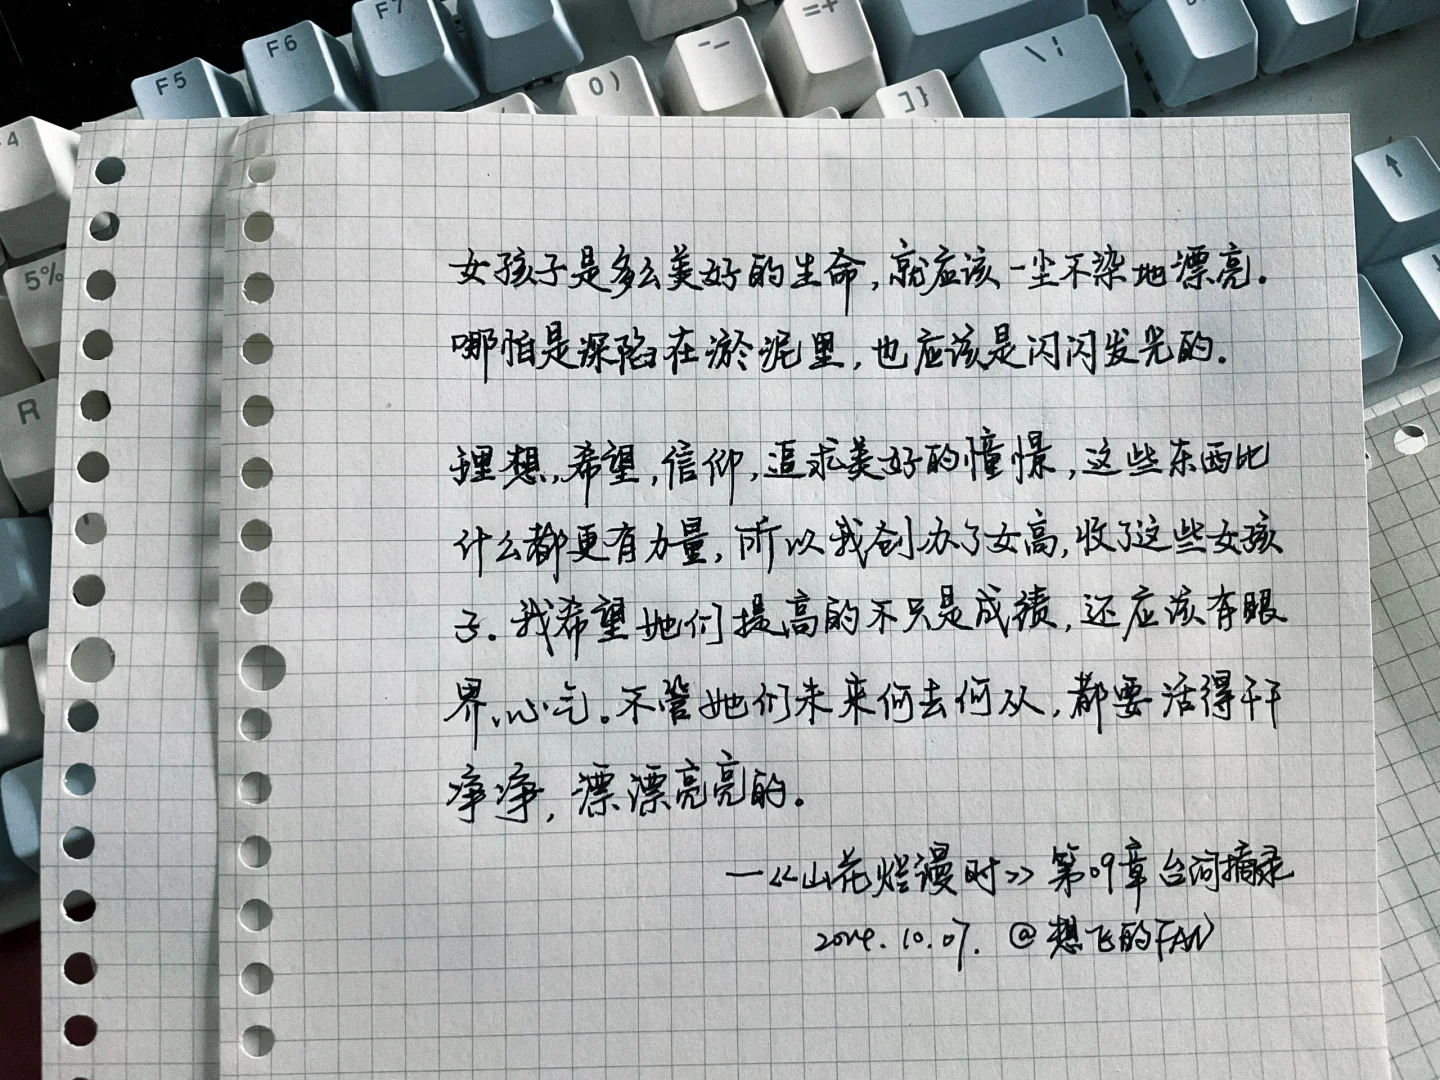 F5
F6
F7
0)
--
=+
]}
\¦
4
5%
R
↑
女孩子是多么美好的生命,就应该一尘不染地漂亮.
哪怕是深陷在淤泥里,也应该是闪闪发光的.
理想,希望,信仰,追求美好的憧憬,这些东西比
什么都更有力量,所以我创办了女高,收了这些女孩
子。我希望她们提高的不只是成绩,还应该有眼
界、心气。不管她们未来何去何从,都要活得干干
净净,漂漂亮亮的。
—《山花烂漫时》第09章台词摘录
2024.10.07. @想飞的FAN